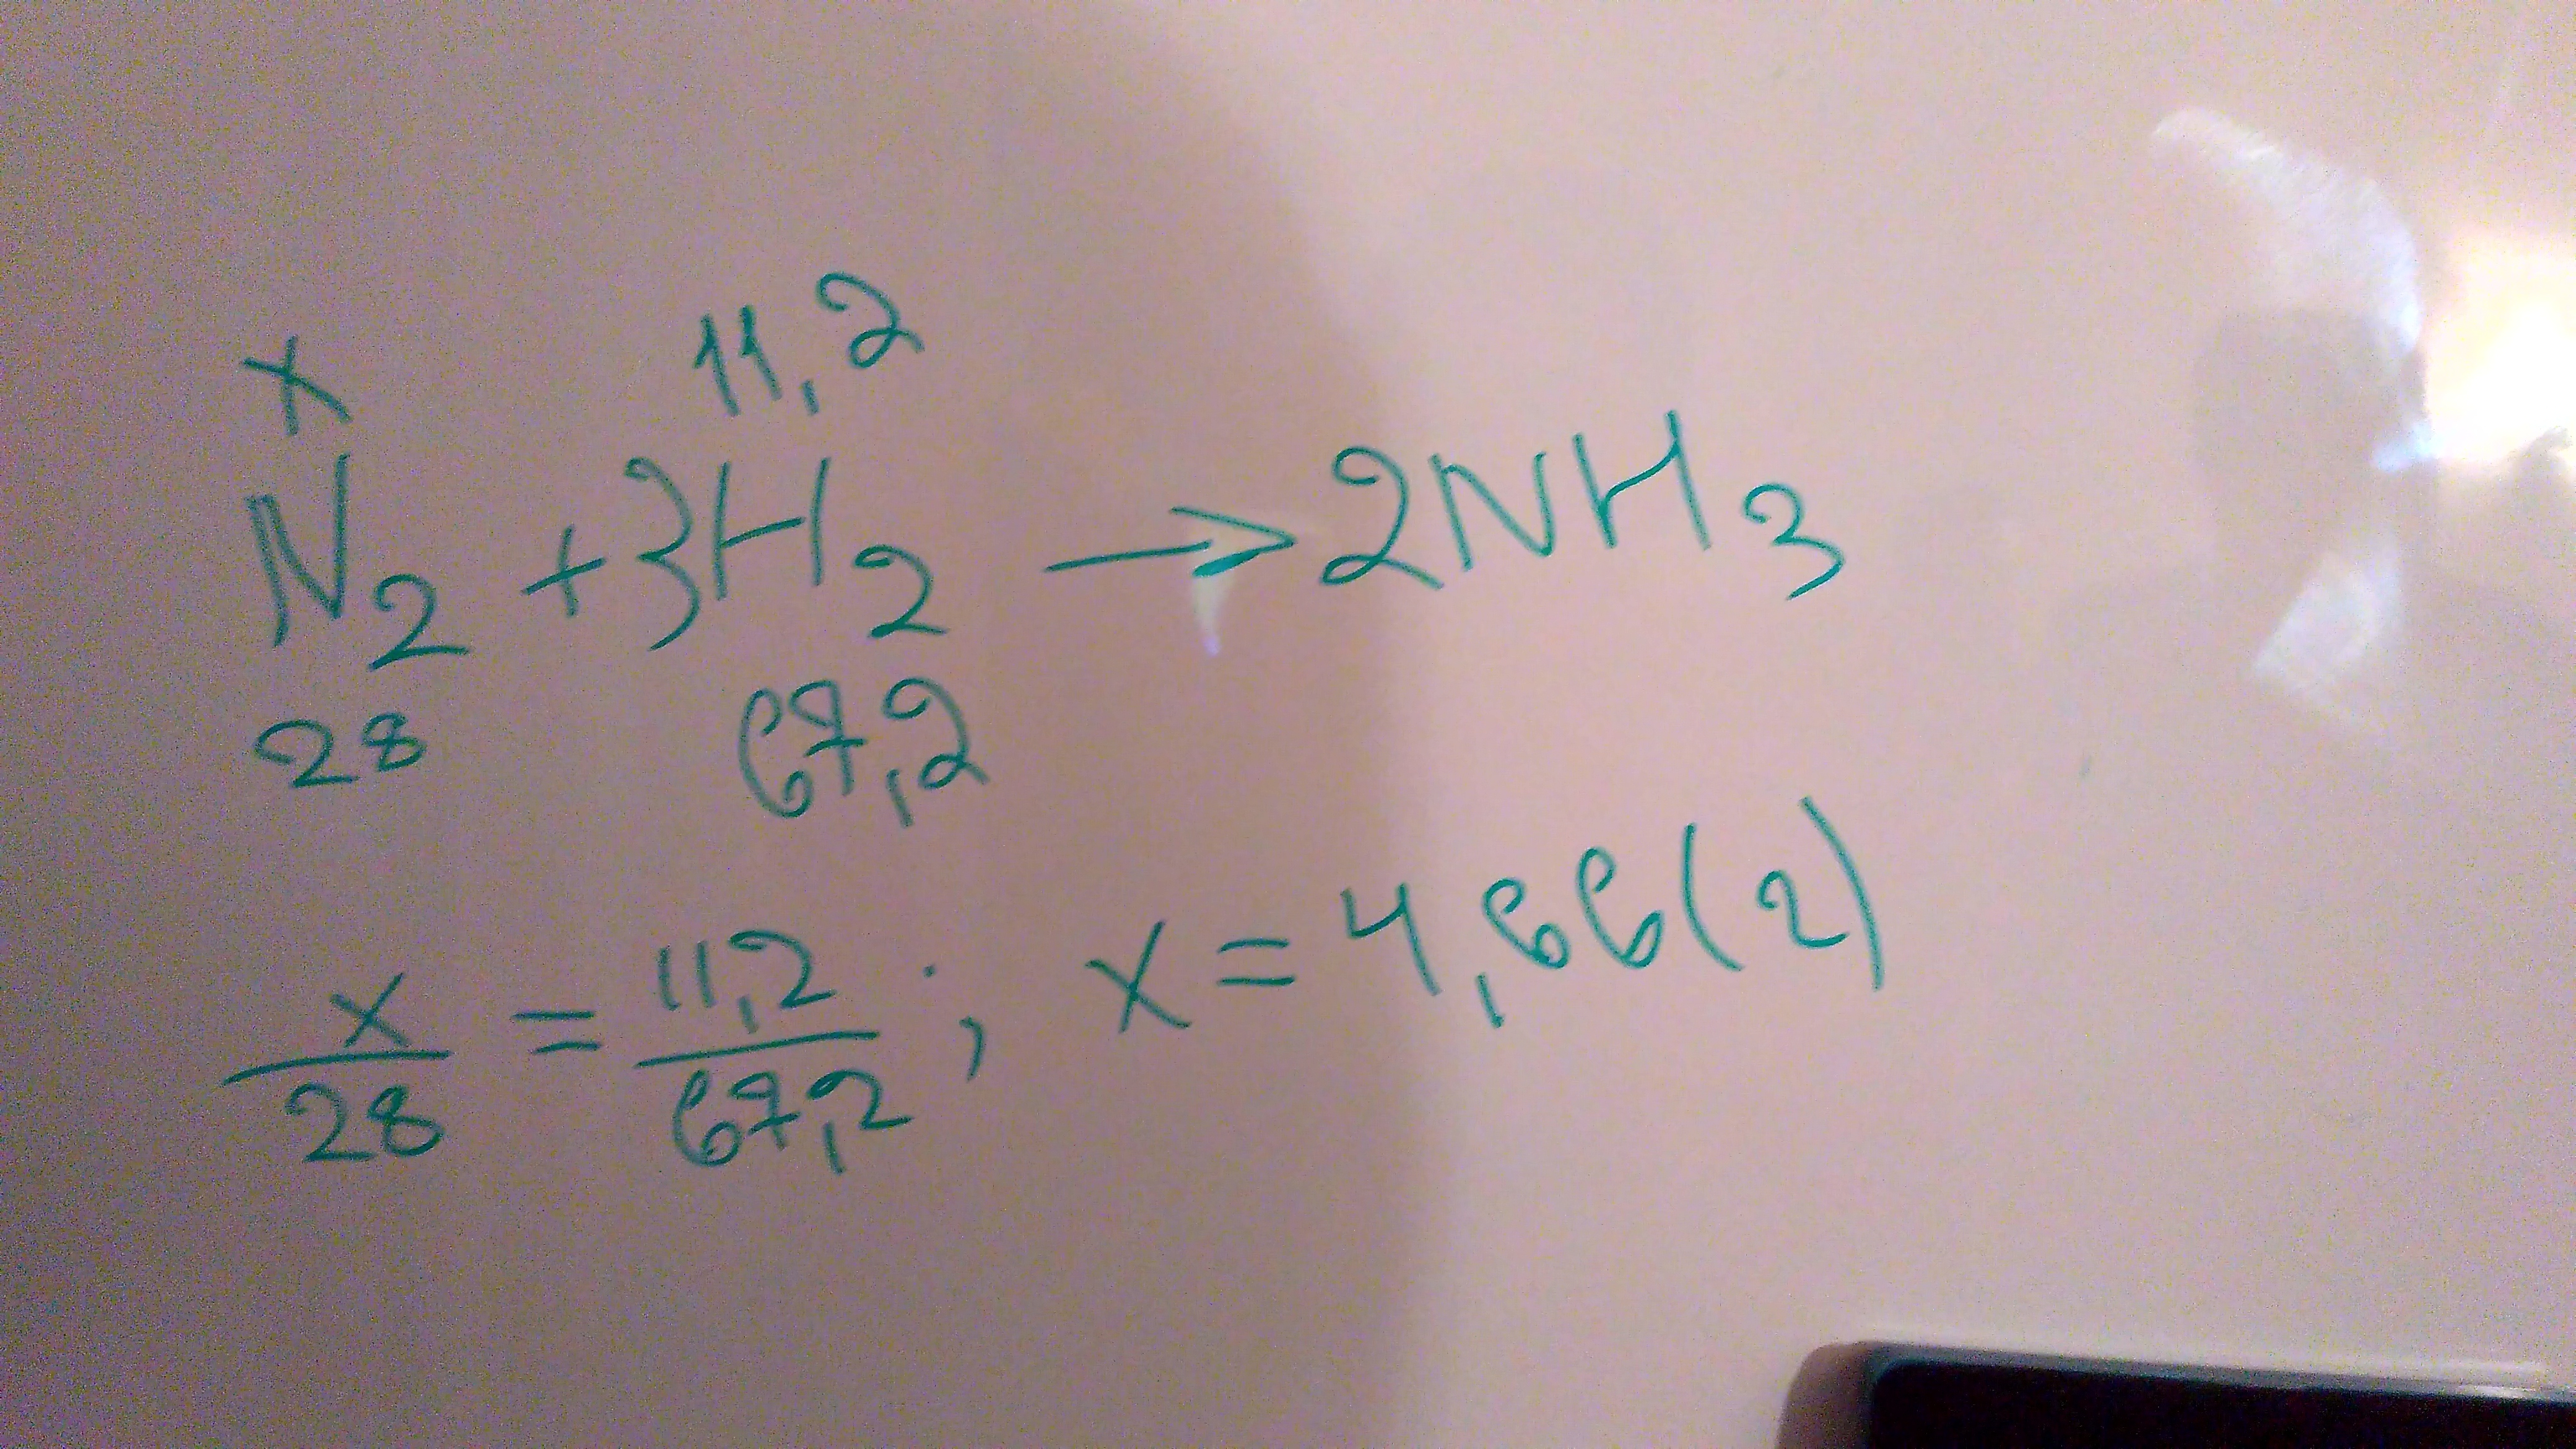 x 11,2
N2 + 3H2 → 2NH3
28 67,2
x/28 = 11,2/67,2 ; x = 4,66(г)